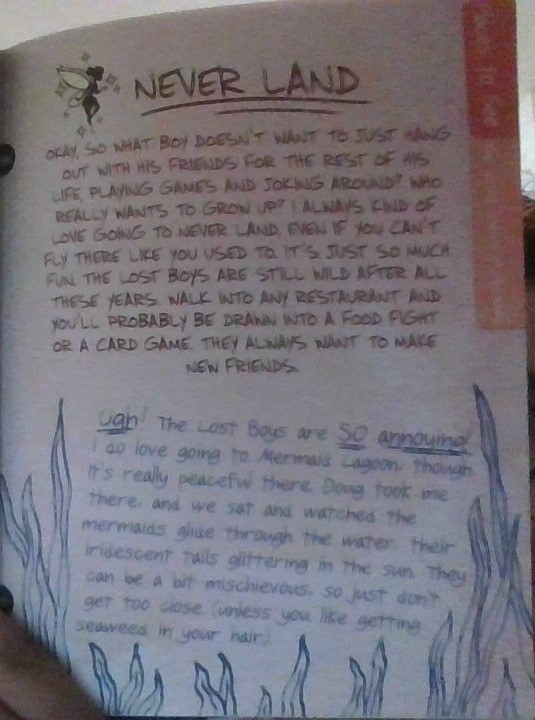 NEVER LAND
OKAY, SO WHAT BOY DOESN'T WANT TO JUST HANG
OUT WITH HIS FRIENDS FOR THE REST OF HIS
LIFE, PLAYING GAMES AND JOKING AROUND? WHO
REALLY WANTS TO GROW UP? I ALWAYS KIND OF
LOVE GOING TO NEVER LAND, EVEN IF YOU CAN'T
FLY THERE LIKE YOU USED TO. IT'S JUST SO MUCH
FUN. THE LOST BOYS ARE STILL WILD AFTER ALL
THESE YEARS. WALK INTO ANY RESTAURANT AND
YOU'LL PROBABLY BE DRAWN INTO A FOOD FIGHT
OR A CARD GAME. THEY ALWAYS WANT TO MAKE
NEW FRIENDS.
Ugh! The Lost Boys are SO annoying!
I do love going to Mermaid Lagoon, though.
It's really peaceful there. Doug took me
there, and we sat and watched the
mermaids glide through the water, their
iridescent tails glittering in the sun. They
can be a bit mischievous, so just don't
get too close (unless you like getting
seaweed in your hair).